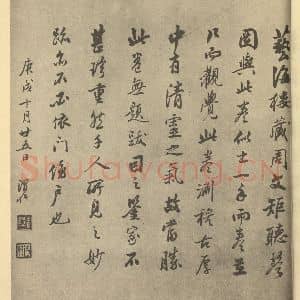 藝海樓藏周文矩聽琴
圖與此卷似出一手而卷
而觀覺此卷淵穆古厚
中有清靈之氣故當勝
此卷無題跋同之鑒家不
甚珍重然予人所見之妙
亦不必依門傍戶也
庚戌十月廿五日
Shufawang.cn